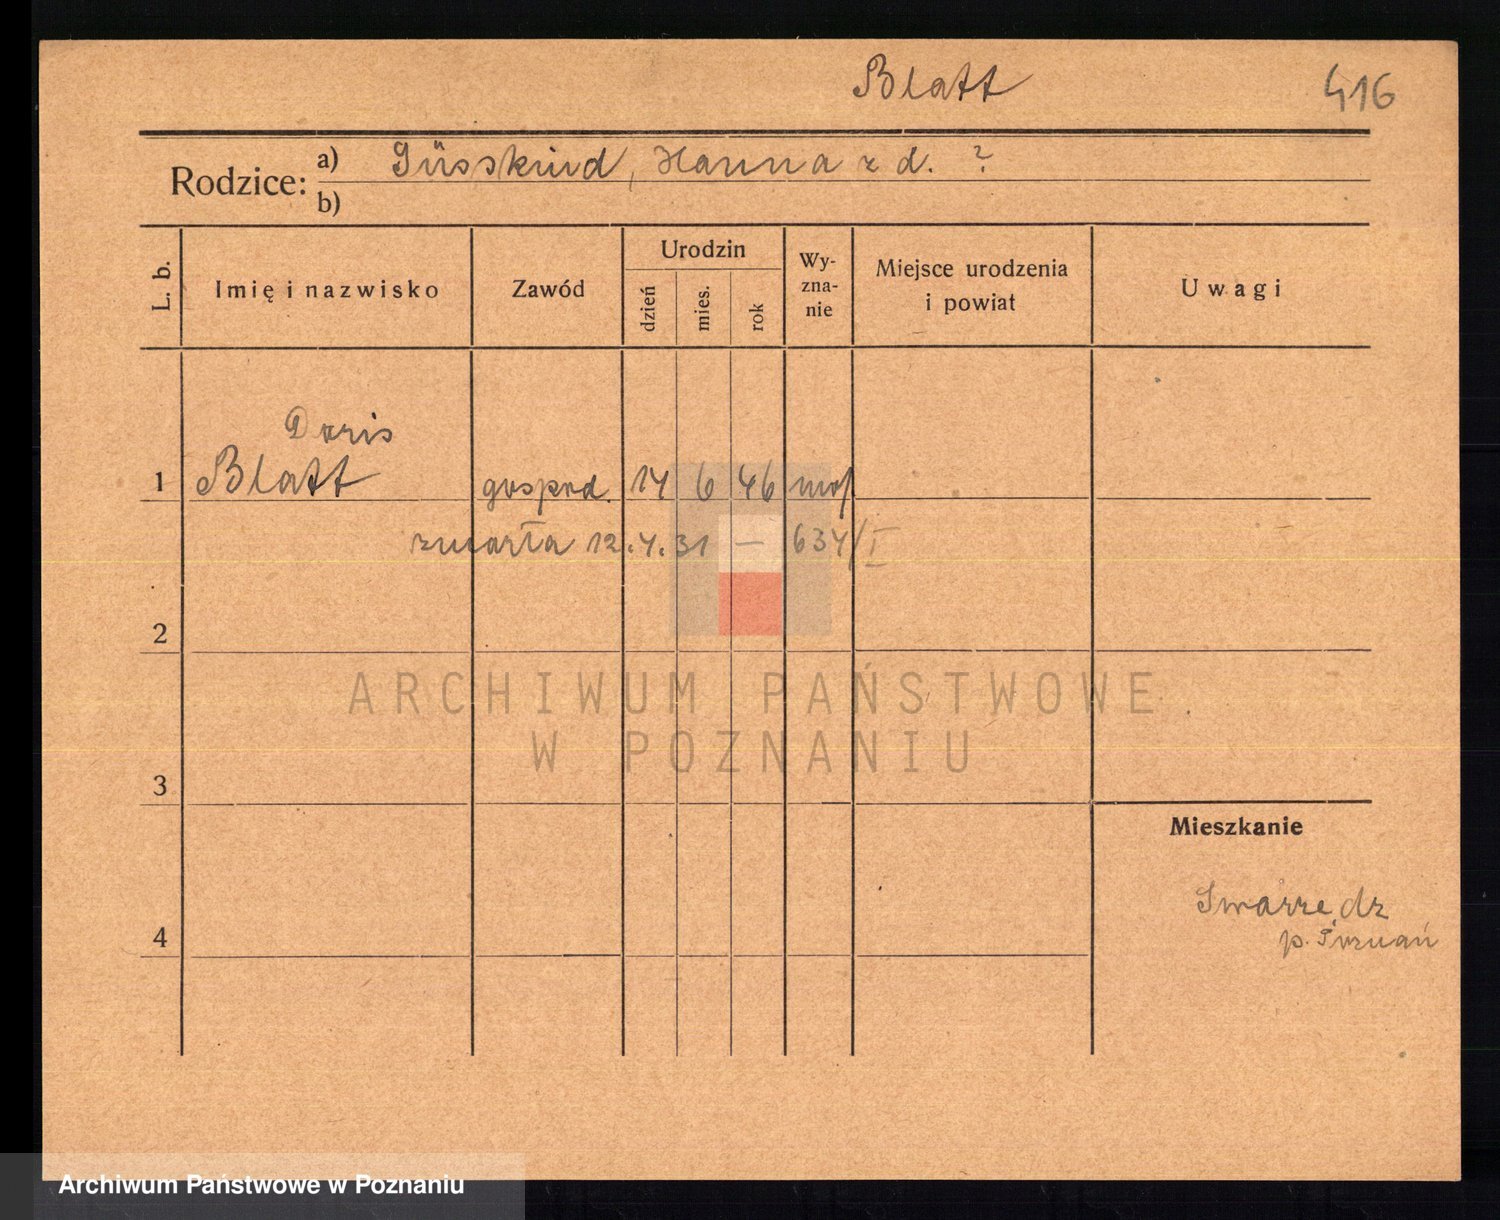 Blatt
416
Rodzice:
a) Süsskind, Hanna z d. ?
b)
L. b.
Imię i nazwisko
Zawód
Urodzin
dzień
mies.
rok
Wy-
zna-
nie
Miejsce urodzenia
i powiat
Uwagi
Doris
1 Blatt gospod. 14 6 46 moj
zmarła 12.4.31 — 634/I
2
ARCHIWUM PAŃSTWOWE
W POZNANIU
3
Mieszkanie
Swarzędz
p. Poznań
4
Archiwum Państwowe w Poznaniu